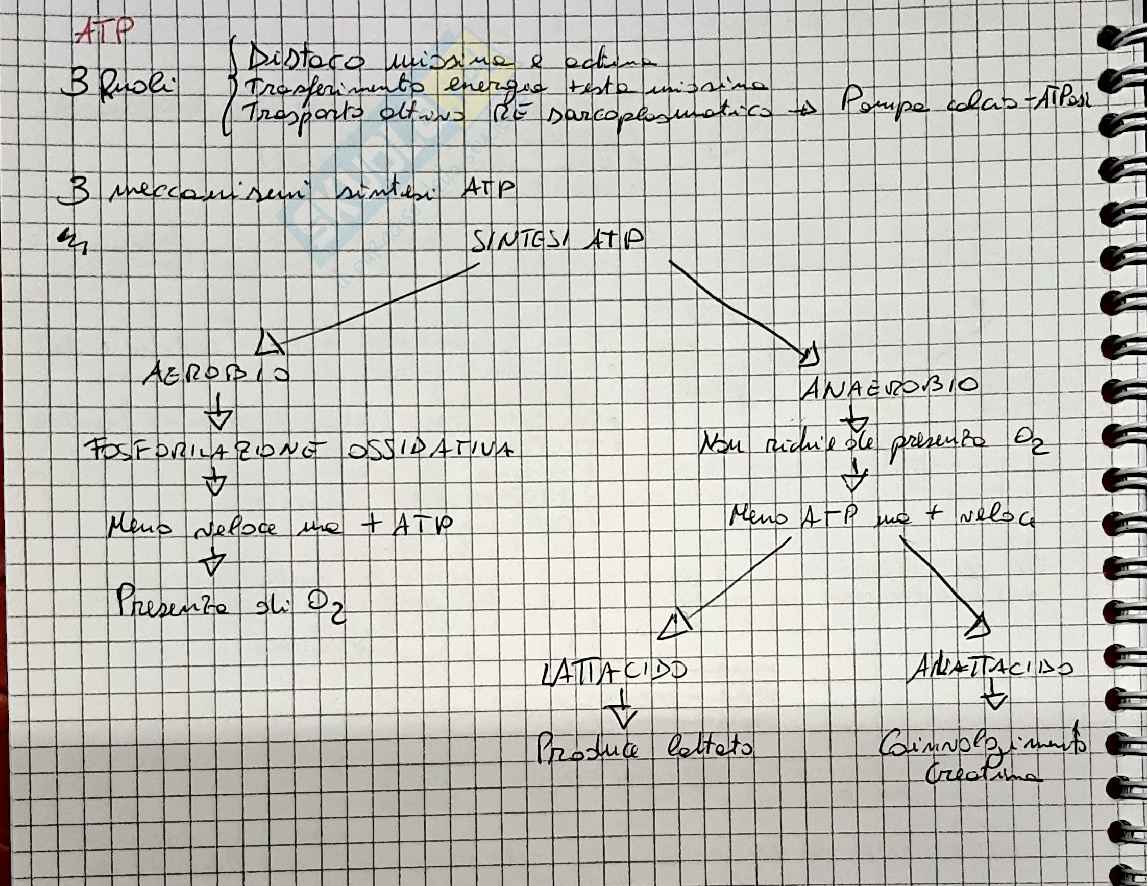 ATP
3 Ruoli
Distacco miosina e actina
Trasferimento energia testa miosina
Trasporto attivo RE sarcoplasmatico → Pompa calcio-ATPasi
3 meccanismi sintesi ATP
SINTESI ATP
AEROBIO
ANAEROBIO
FOSFORILAZIONE OSSIDATIVA
Non richiede presenza O2
Meno veloce ma + ATP
Meno ATP ma + veloce
Presenza di O2
LATTACIDO
ALATTACIDO
Produce lattato
Coinvolgimento
Creatina